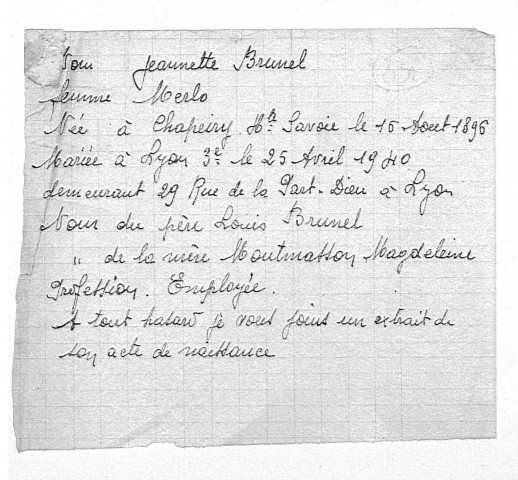 Nom Jeannette Brunel
femme Merlo
Née à Chapeiry Hte Savoie le 15 Aout 1896
Mariée à Lyon 3e le 25 Avril 1940
demeurant 29 Rue de la Part-Dieu à Lyon
Nom du père Louis Brunel
" de la mère Montmasson Magdeleine
Profession. Employée.
A tout hasard je vous joins un extrait de
son acte de naissance